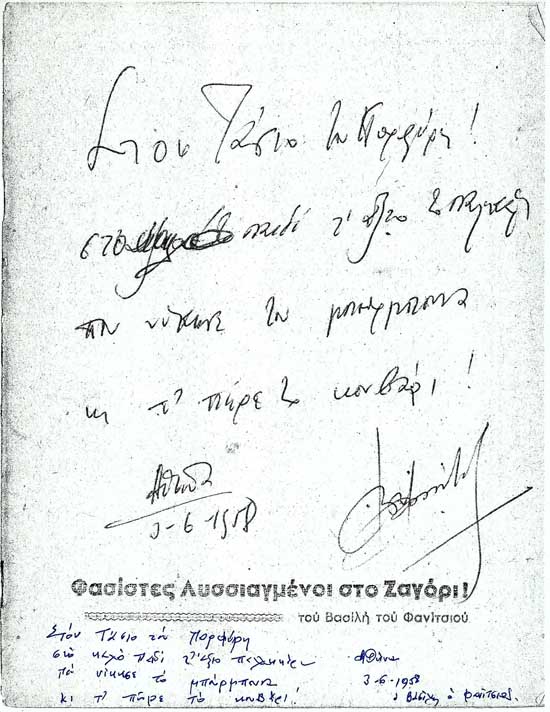 Στου Τάσιο τον Πορφύρη!
στο παιδί τ' άξιο το παλικάρι
που νίκησε το μπάρμπουνα
κι τ' πήρε το κουβάρι!
Αθήνα
3-6-1958
Φασίστες Λυσσιαγμένοι στο Ζαγόρι!
τού Βασίλη τού Φανίτσιου
Στόν Τάσιο τόν Πορφύρη
στό καλό παιδί τ' άξιο
πά νίκησε τό μπάρμπουνα
κι τ' πήρε τό κουβάρι!
Αθήνα
3-6-1958
ο Βασίλης ο Φανίτσιος